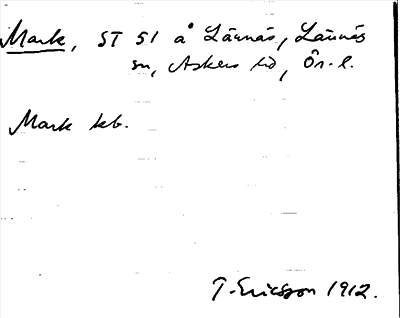 Mark, ST 51 å Lännäs, Lännäs
sn, Askers hd, Ör. l.
Mark kb.
T. Ericsson 1912.